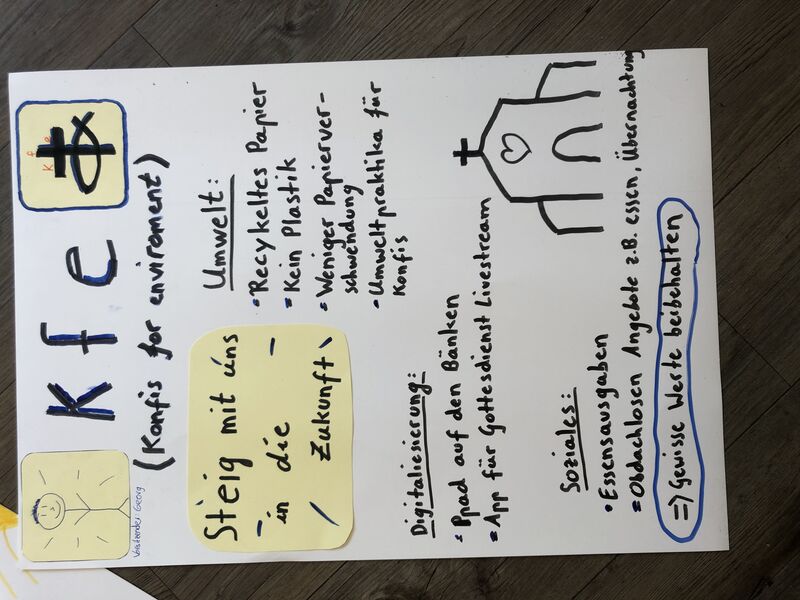 K f e
K f e
(Konfis for enviroment)
Vorsitzender Georg
Steig mit uns
in die
Zukunft
Umwelt:
Recykeltes Papier
Kein Plastik
Weniger Papierver-
schwendung
Umweltpraktika für
Konfis
Digitaliesierung:
Ppad auf den Bänken
App für Gottesdienst Livestream
Soziales:
Essensausgaben
Obdachlosen Angebote z.B. essen, Übernachtung
=> Gewisse Werte beibehalten